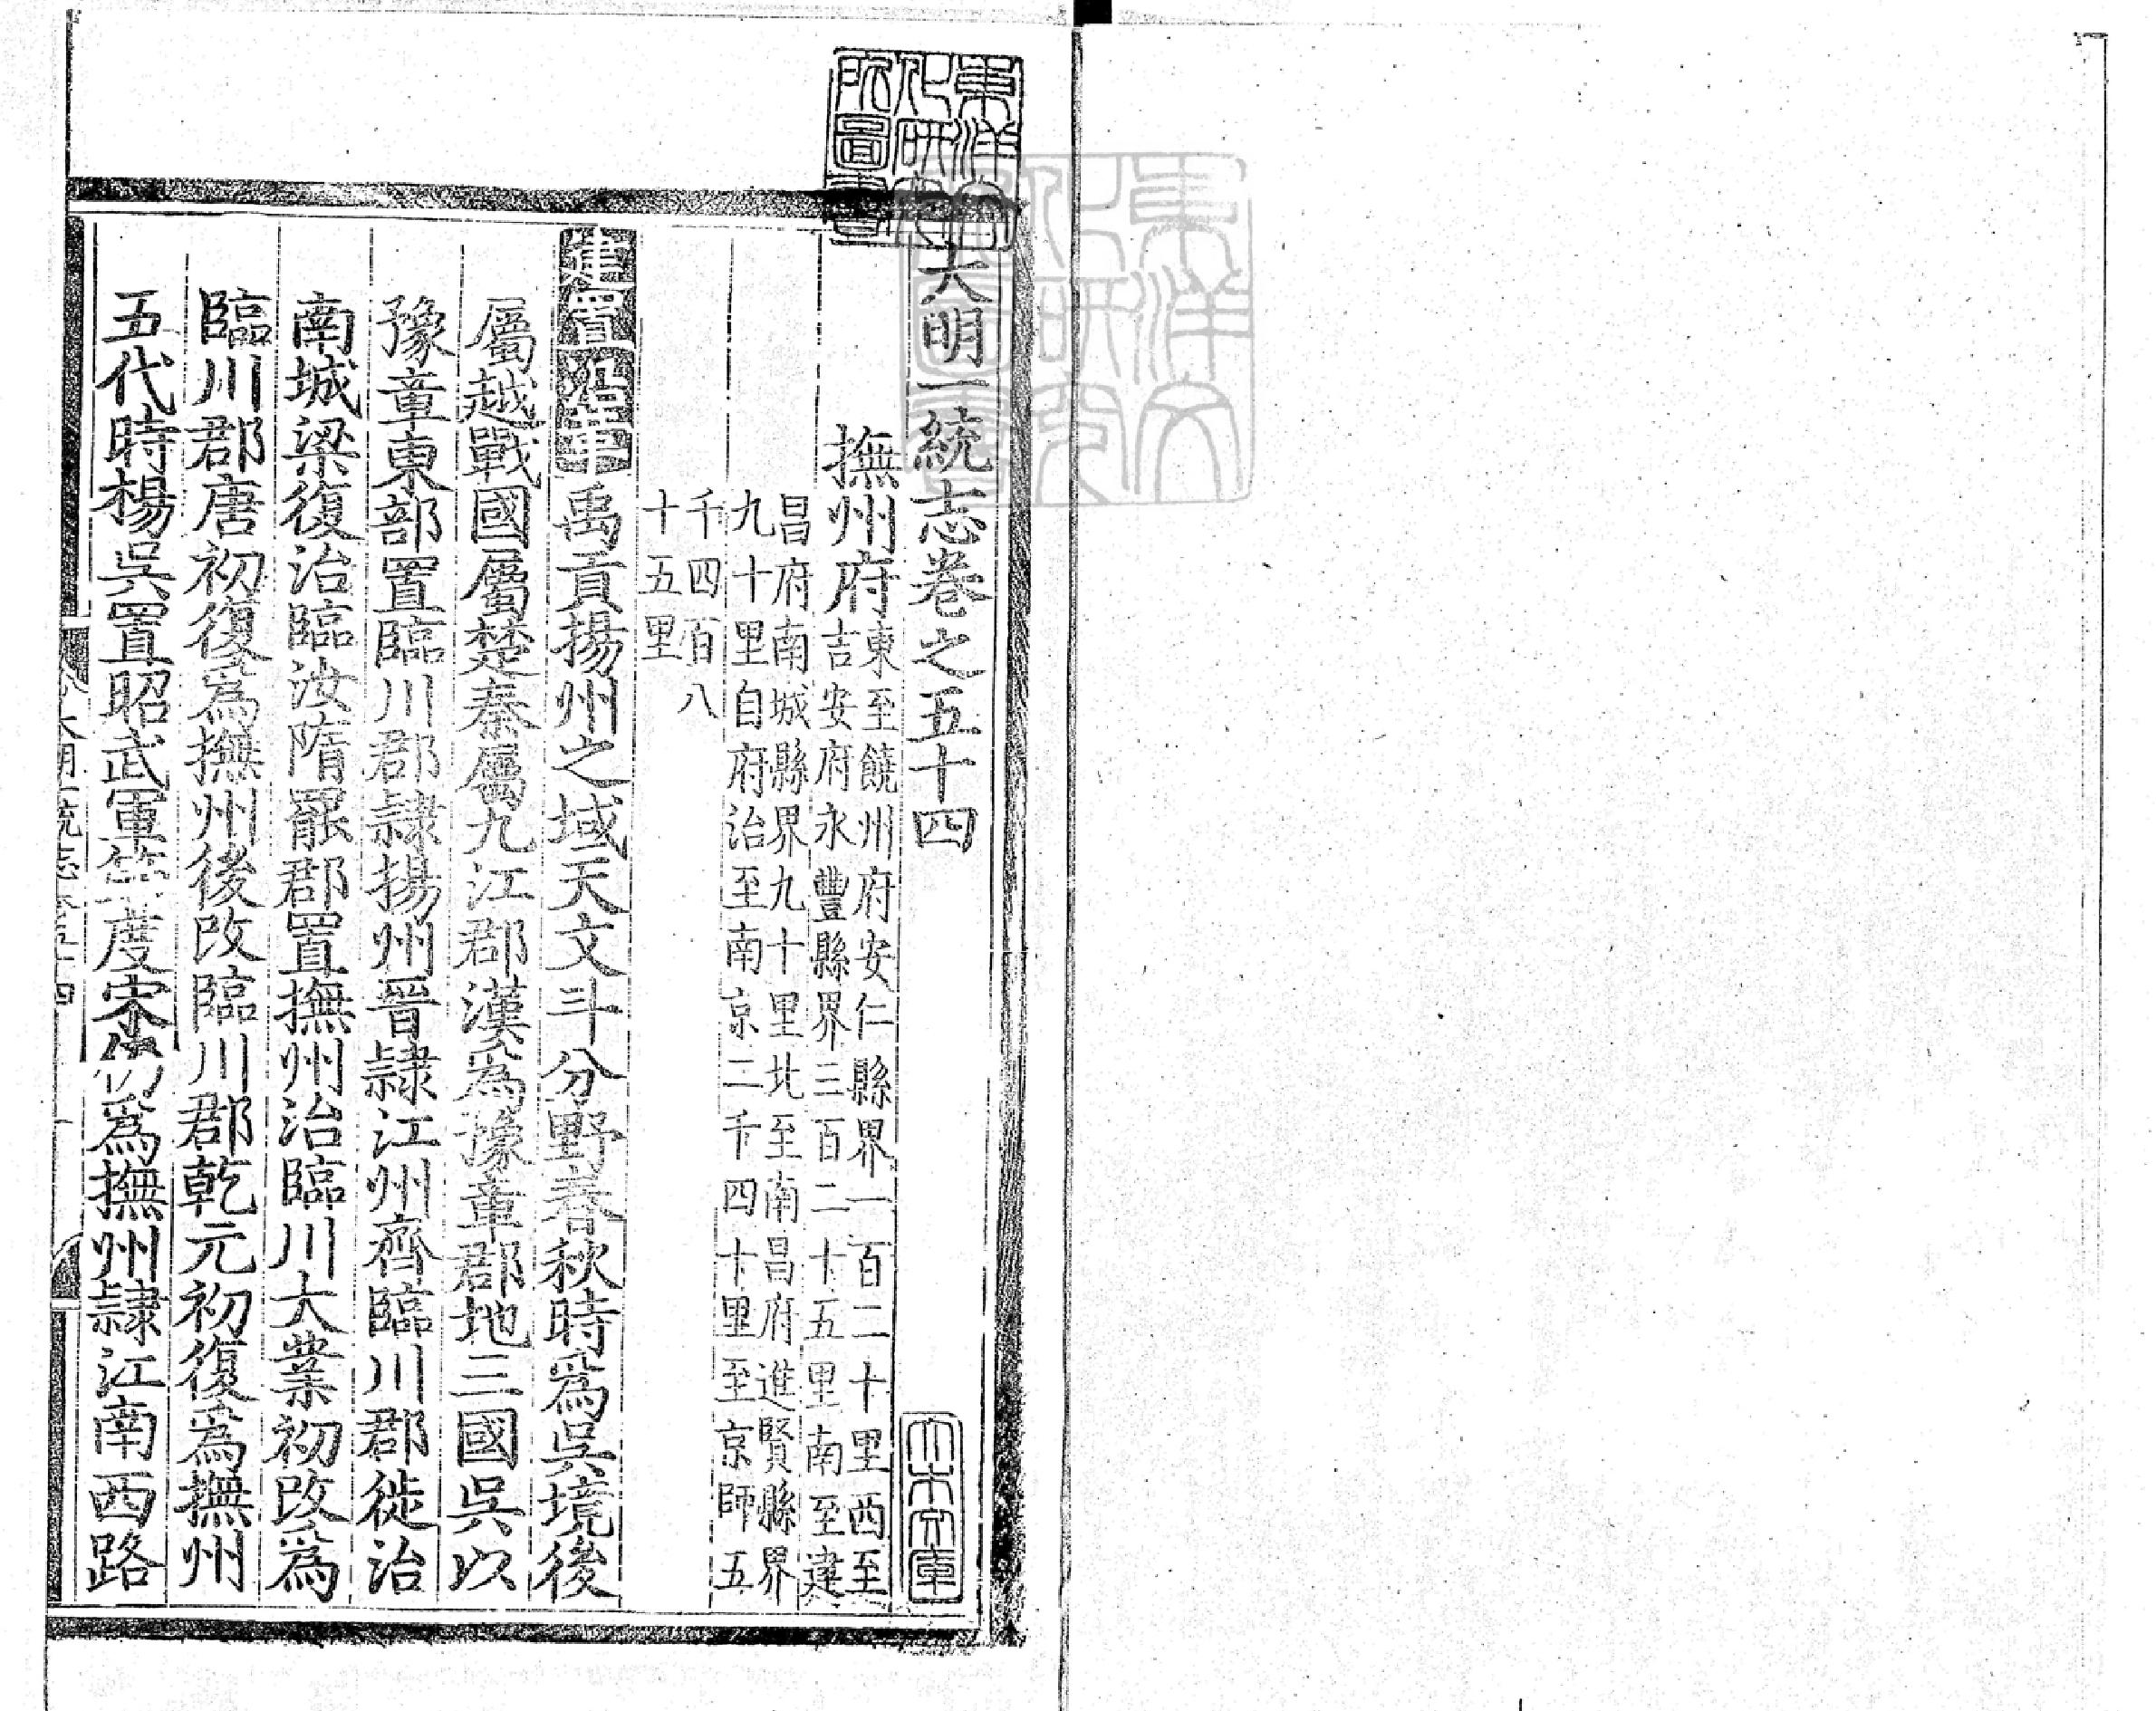 東洋文化研究所圖書
大明一統志卷之五十四
大木文庫
撫州府
東至饒州府安仁縣界一百二十里西至
吉安府永豐縣界三百二十五里南至建
昌府南城縣界九十里北至南昌府進賢縣界
九十里自府治至南京二千四十里至京師五
千四百八
十五里
建置沿革禹貢揚州之域天文斗分野春秋時爲吳境後
屬越戰國屬楚秦屬九江郡漢爲豫章郡地三國吳以
豫章東部置臨川郡隷揚州晉隷江州齊臨川郡徙治
南城梁復治臨汝隋罷郡置撫州治臨川大業初改爲
臨川郡唐初復爲撫州後改臨川郡乾元初復爲撫州
五代時楊吳置昭武軍節度宋仍爲撫州隷江南西路
大明一統志卷五十四 一